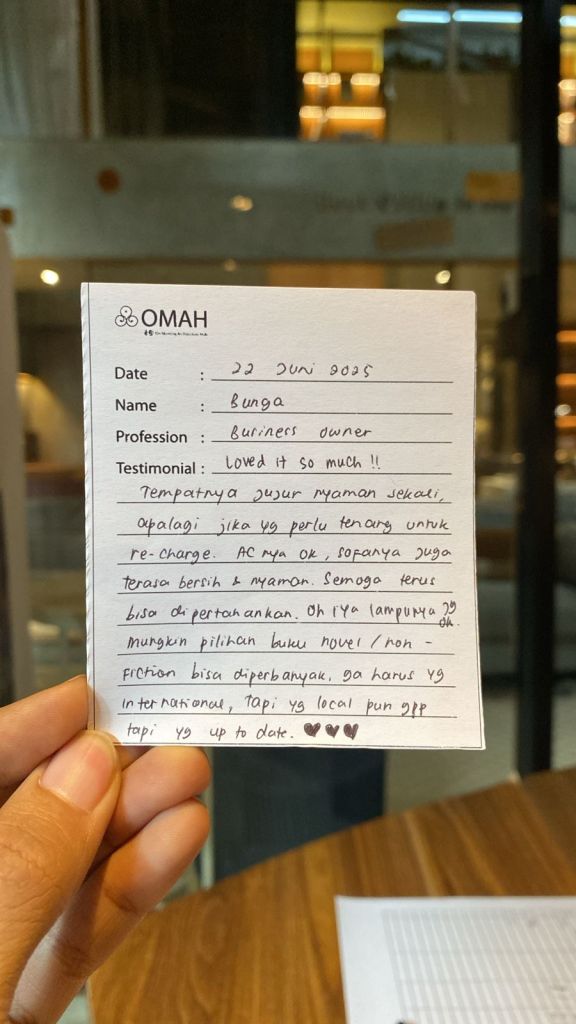 OMAH
Date : 22 Juni 2025
Name : Bunga
Profession : Business owner
Testimonial : Loved it so much !!
Tempatnya jujur nyaman sekali,
apalagi jika yg perlu tenang untuk
re-charge. AC nya ok, sofanya juga
terasa bersih & nyaman. Semoga terus
bisa dipertahankan. Oh iya lampunya jg
ok.
Mungkin pilihan buku novel / non -
fiction bisa diperbanyak, ga harus yg
international, tapi yg local pun gpp
tapi yg up to date. ♥♥♥